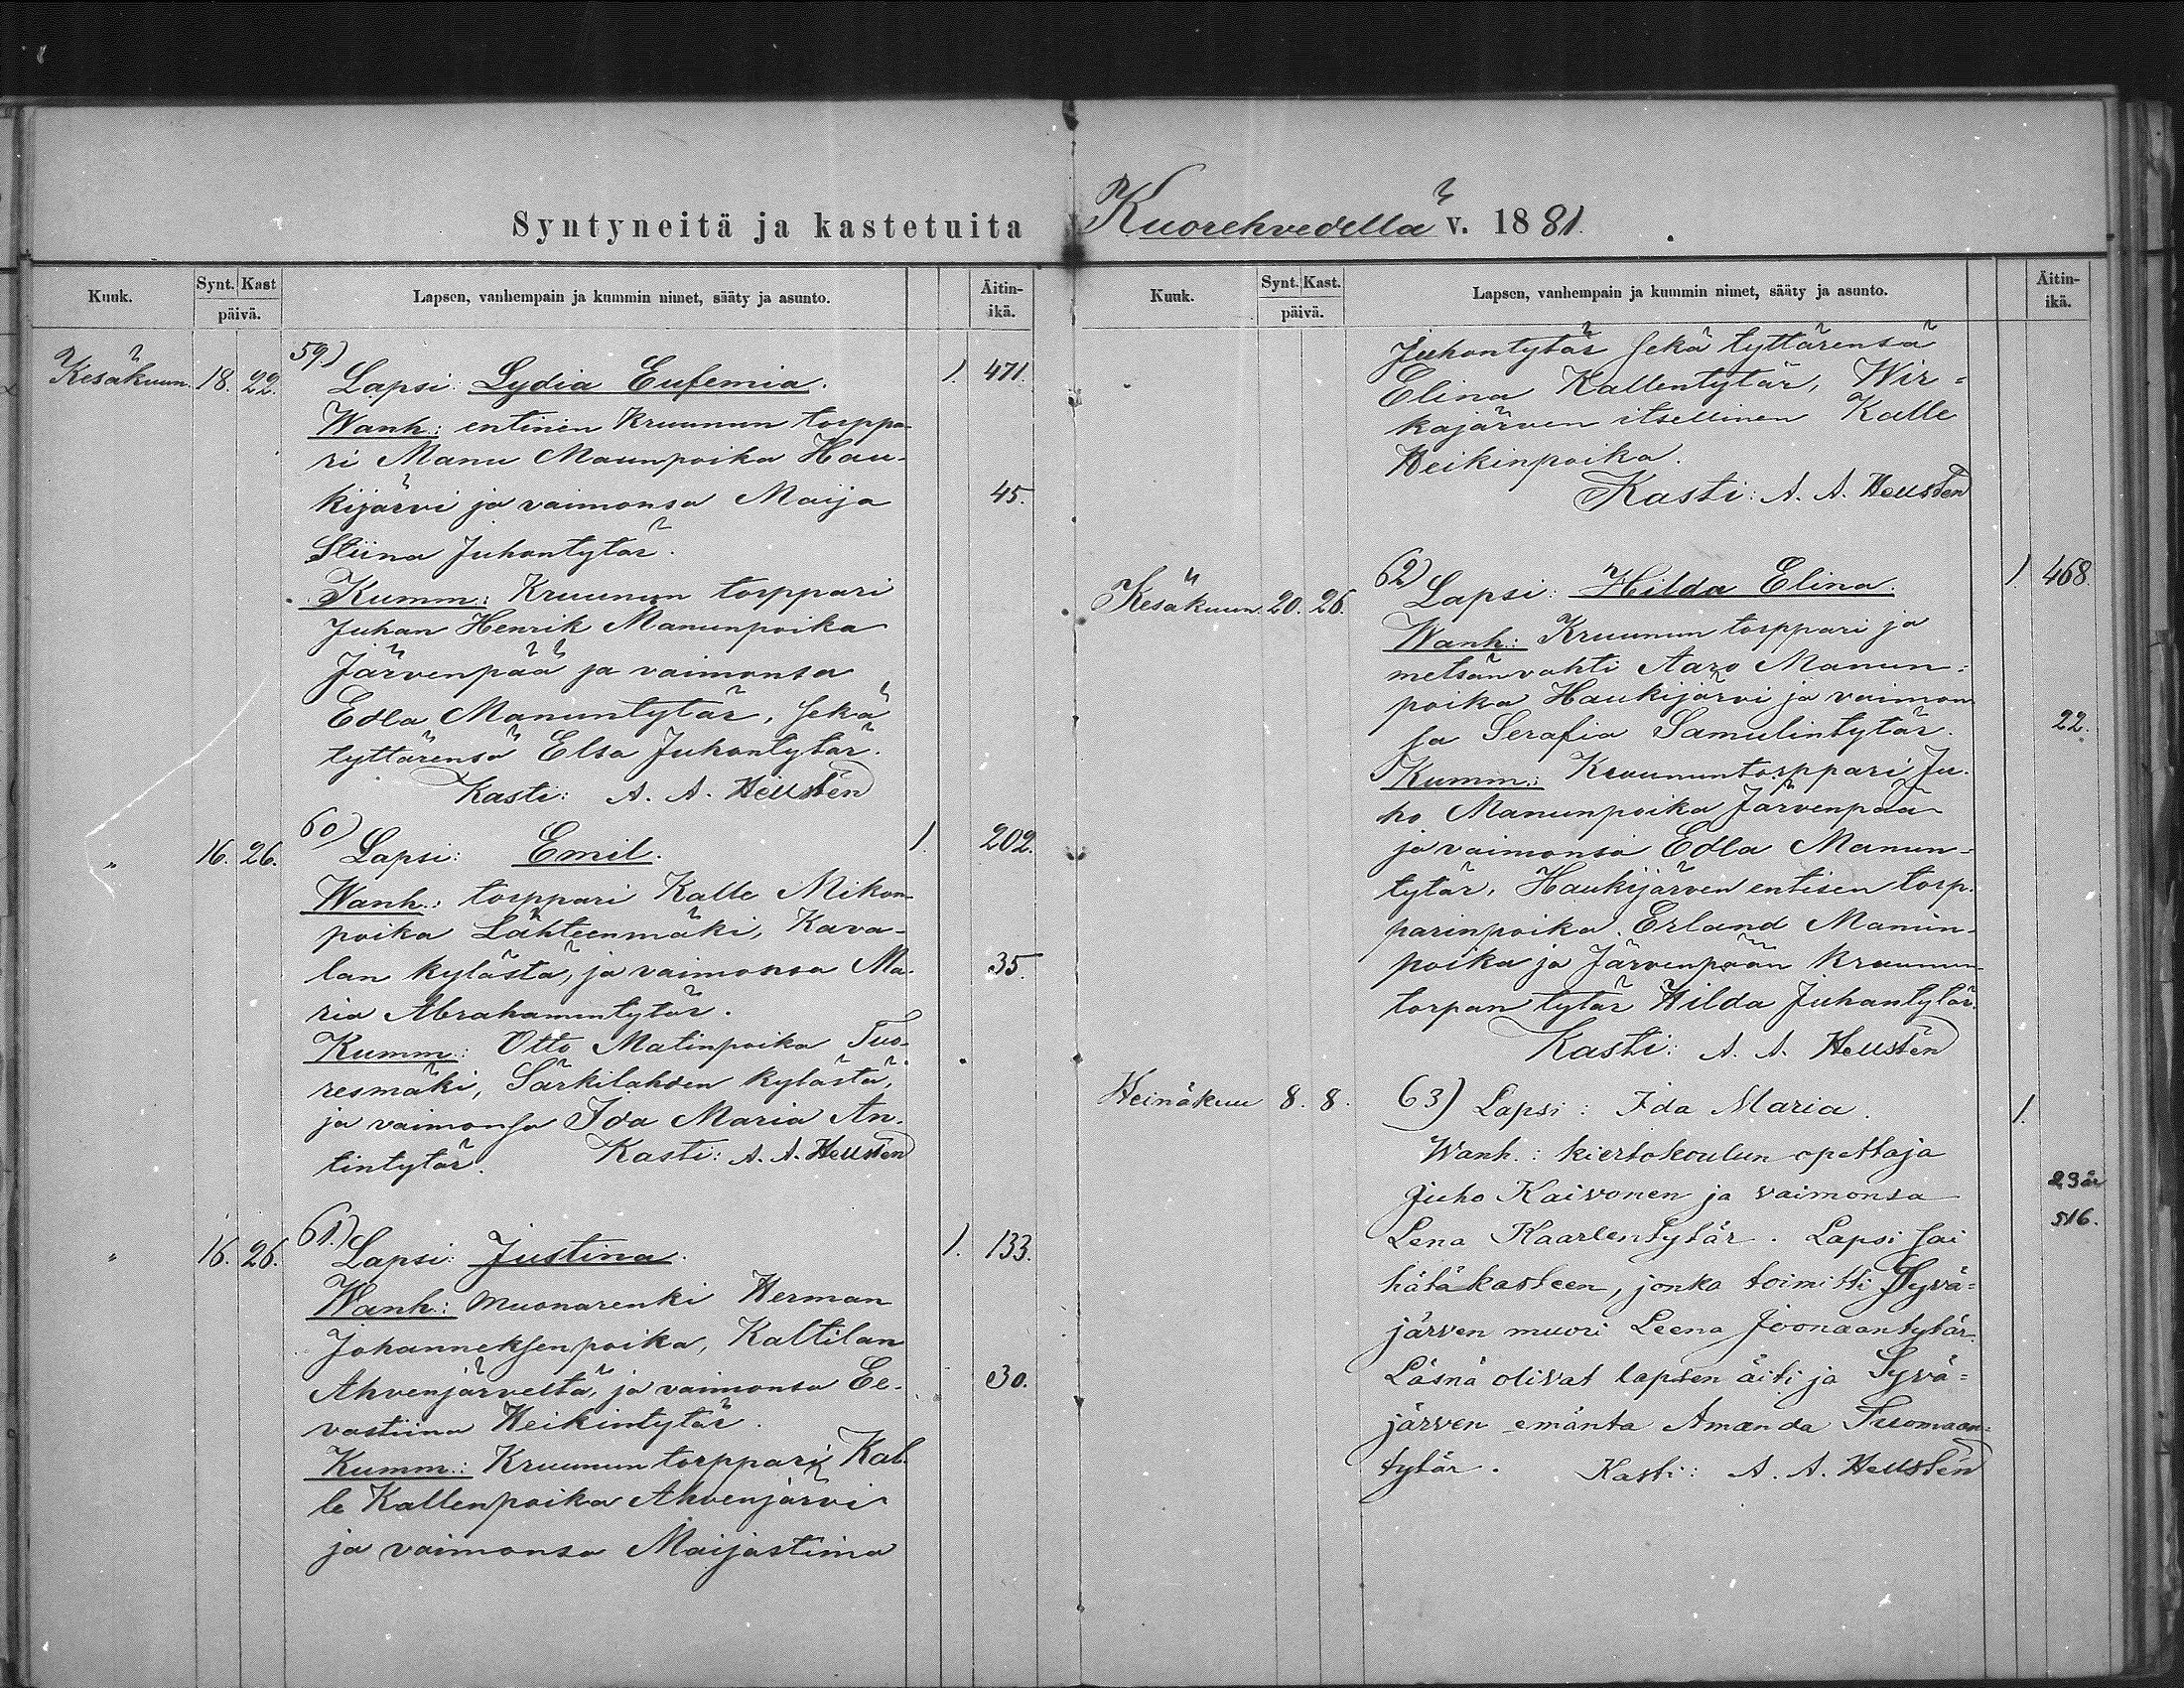 Syntyneitä ja kastetuita Kuorehvedellä v. 1881.
Kuuk. Synt. Kast päivä. Lapsen, vanhempain ja kummin nimet, sääty ja asunto. Äitin-ikä.
Kesäkuun 18. 22. 59) Lapsi: Lydia Eufemia. 1. 471.
Wanh.: entinen Kruunun torppa-
ri Manu Maunpoika Hau-
kijärvi ja vaimonsa Maija 45.
Stiina Juhontytär.
Kumm: Kruunun torppari
Juhan Henrik Manunpoika
Järvenpää ja vaimonsa
Edla Manuntytär, sekä
tyttärensä Elsa Juhontytär.
Kasti: A. A. Hellstén
" 16. 26. 60) Lapsi: Emil. 1. 202.
Wanh.: torppari Kalle Mikon-
poika Lähteenmäki, Kava-
lan kylästä, ja vaimonsa Ma- 35.
ria Abrahamintytär.
Kumm: Otto Matinpoika Tuo-
resmäki, Särkilahden kylästä,
ja vaimonsa Ida Maria An-
tintytär. Kasti: A. A. Hellstén
" 16. 26. 61.) Lapsi: Justina. 1. 133.
Wanh.: muonarenki Herman
Johanneksenpoika, Kaltilan
Ahvenjärveltä, ja vaimonsa Ee- 30.
vastiina Heikintytär.
Kumm.: Kruunun torppari Kal-
le Kallenpoika Ahvenjärvi
ja vaimonsa Maijastiina
Kuuk. Synt. Kast. päivä. Lapsen, vanhempain ja kummin nimet, sääty ja asunto. Äitin-ikä.
Juhontytär sekä tyttärensä
Elina Kallentytär, Wir=
kajärven itsellinen Kalle
Heikinpoika.
Kasti: A. A. Hellstén
Kesäkuun 20. 26. 62) Lapsi: Hilda Elina. 1. 468.
Wanh.: Kruunun torppari ja
metsänvahti Aaro Manun=
poika Haukijärvi ja vaimon
sa Serafia Samulintytär. 22.
Kumm.: Kruununtorppari Ju-
ho Manunpoika Järvenpää
ja vaimonsa Edla Manun=
tytär, Haukijärven entisen torp-
parinpoika Erland Manun-
poika ja Järvenpään kruunun-
torpan tytär Hilda Juhantytär.
Kasti: A. A. Hellstén
Heinäkuu 8. 8. 63) Lapsi: Ida Maria. 1.
Wanh.: kiertokoulun opettaja
Juho Kaivonen ja vaimonsa 23 år
Lena Kaarlentytär. Lapsi sai 516.
hätäkasteen, jonka toimitti Syvä=
järven muori Leena Joonaantytär.
Läsnä olivat lapsen äiti ja Syvä=
järven emäntä Amanda Tuomaan=
tytär. Kasti: A. A. Hellstén